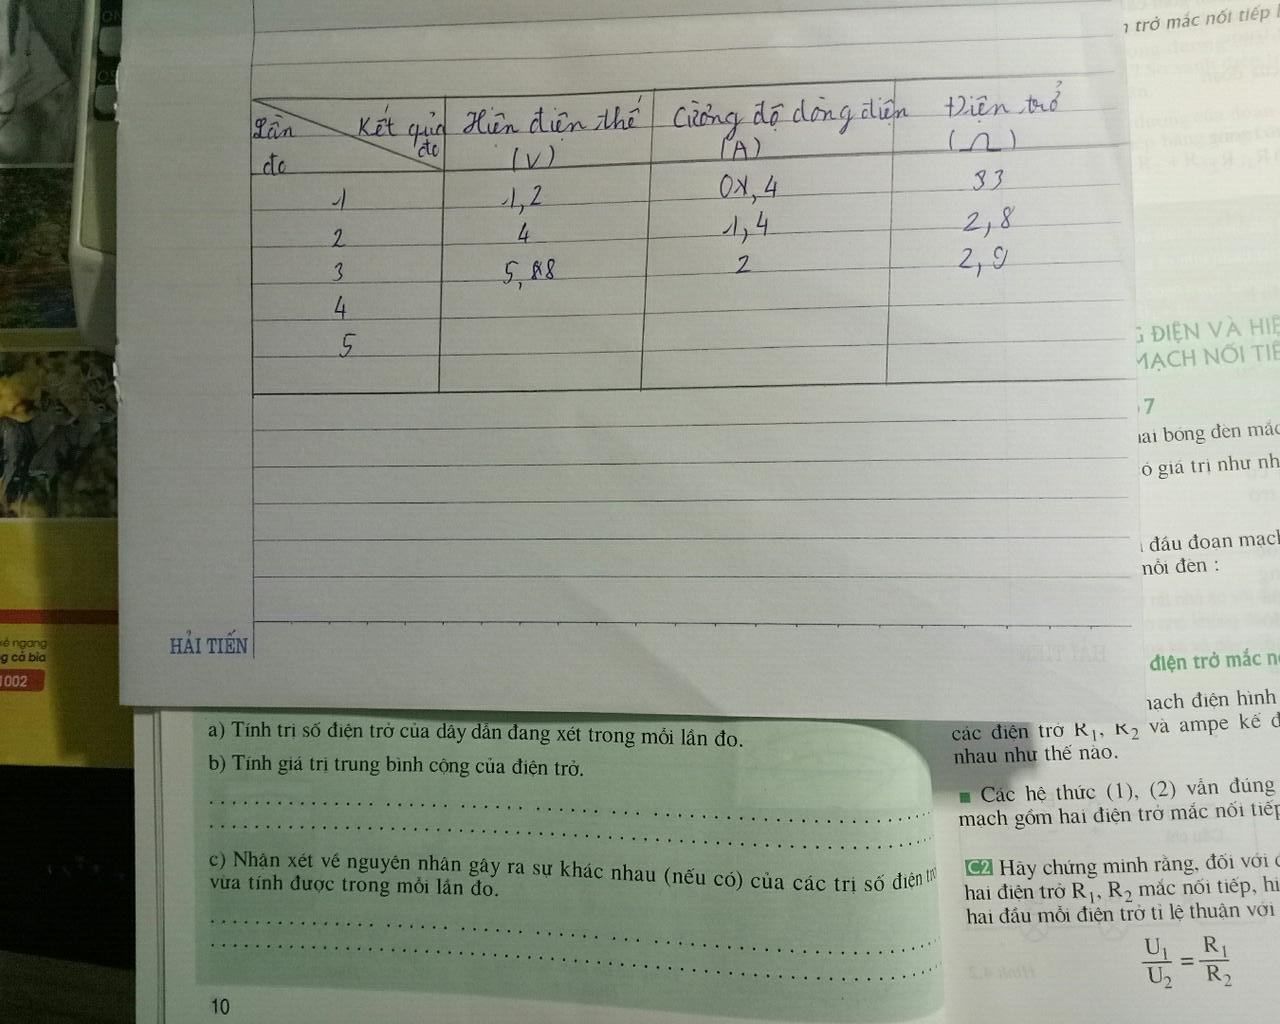 n trở mắc nối tiếp
Lần
đo
Kết quả
đo
Hiên điện thế
(V)
Cường độ dòng điện
(A)
Điên trở
(Ω)
1 1,2 0,4 33
2 4 1,4 2,8
3 5,88 2 2,9
4
5
G ĐIỆN VÀ HIỆ
MẠCH NỐI TIẾ
7
hai bóng đèn mắc
ó giá trị như nh
đầu đoạn mạch
nỗi đèn :
HẢI TIẾN
kẻ ngang
g cả bìa
1002
điện trở mắc n
mạch điện hình
các điện trở R1, R2 và ampe kế đ
nhau như thế nào.
■ Các hệ thức (1), (2) vẫn đúng
mạch gồm hai điện trở mắc nối tiếp
C2 Hãy chứng minh rằng, đối với đ
hai điện trở R1, R2 mắc nối tiếp, hi
hai đầu mỗi điện trở tỉ lệ thuận với
U1/U2 = R1/R2
a) Tính trị số điện trở của dây dẫn đang xét trong mỗi lần đo.
b) Tính giá trị trung bình cộng của điện trở.
c) Nhận xét về nguyên nhân gây ra sự khác nhau (nếu có) của các trị số điện trở
vừa tính được trong mỗi lần đo.
10